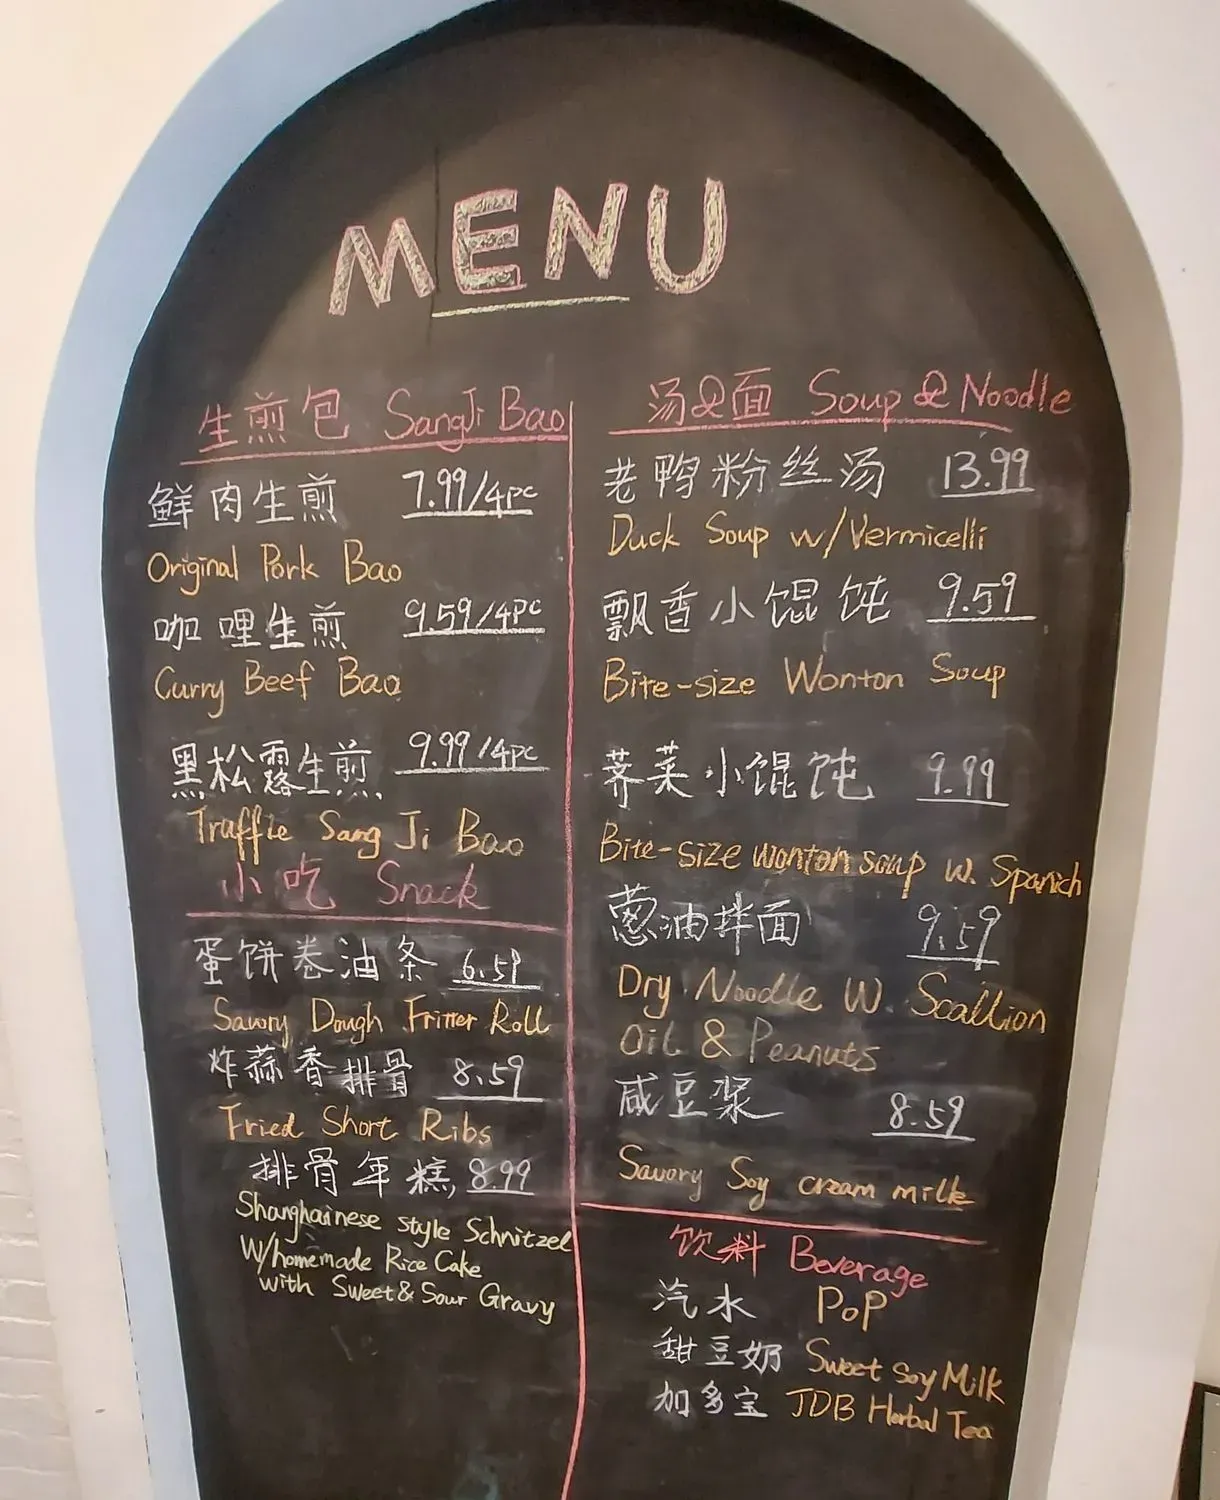 MENU
生煎包 SangJi Bao
鲜肉生煎 7.99/4pc
Original Pork Bao
咖哩生煎 9.59/4pc
Curry Beef Bao
黑松露生煎 9.99/4pc
Truffle Sang Ji Bao
小吃 Snack
蛋饼卷油条 6.59
Savory Dough Fritter Roll
炸蒜香排骨 8.59
Fried Short Ribs
排骨年糕, 8.99
Shanghainese style Schnitzel
W/homemade Rice Cake
with Sweet & Sour Gravy
汤&面 Soup & Noodle
老鸭粉丝汤 13.99
Duck Soup w/Vermicelli
飘香小馄饨 9.59
Bite-size Wonton Soup
荠菜小馄饨 9.99
Bite-size wonton soup w. Spanich
葱油拌面 9.59
Dry Noodle W. Scallion
Oil & Peanuts
咸豆浆 8.59
Savory Soy cream milk
饮料 Beverage
汽水 PoP
甜豆奶 Sweet Soy Milk
加多宝 JDB Herbal Tea